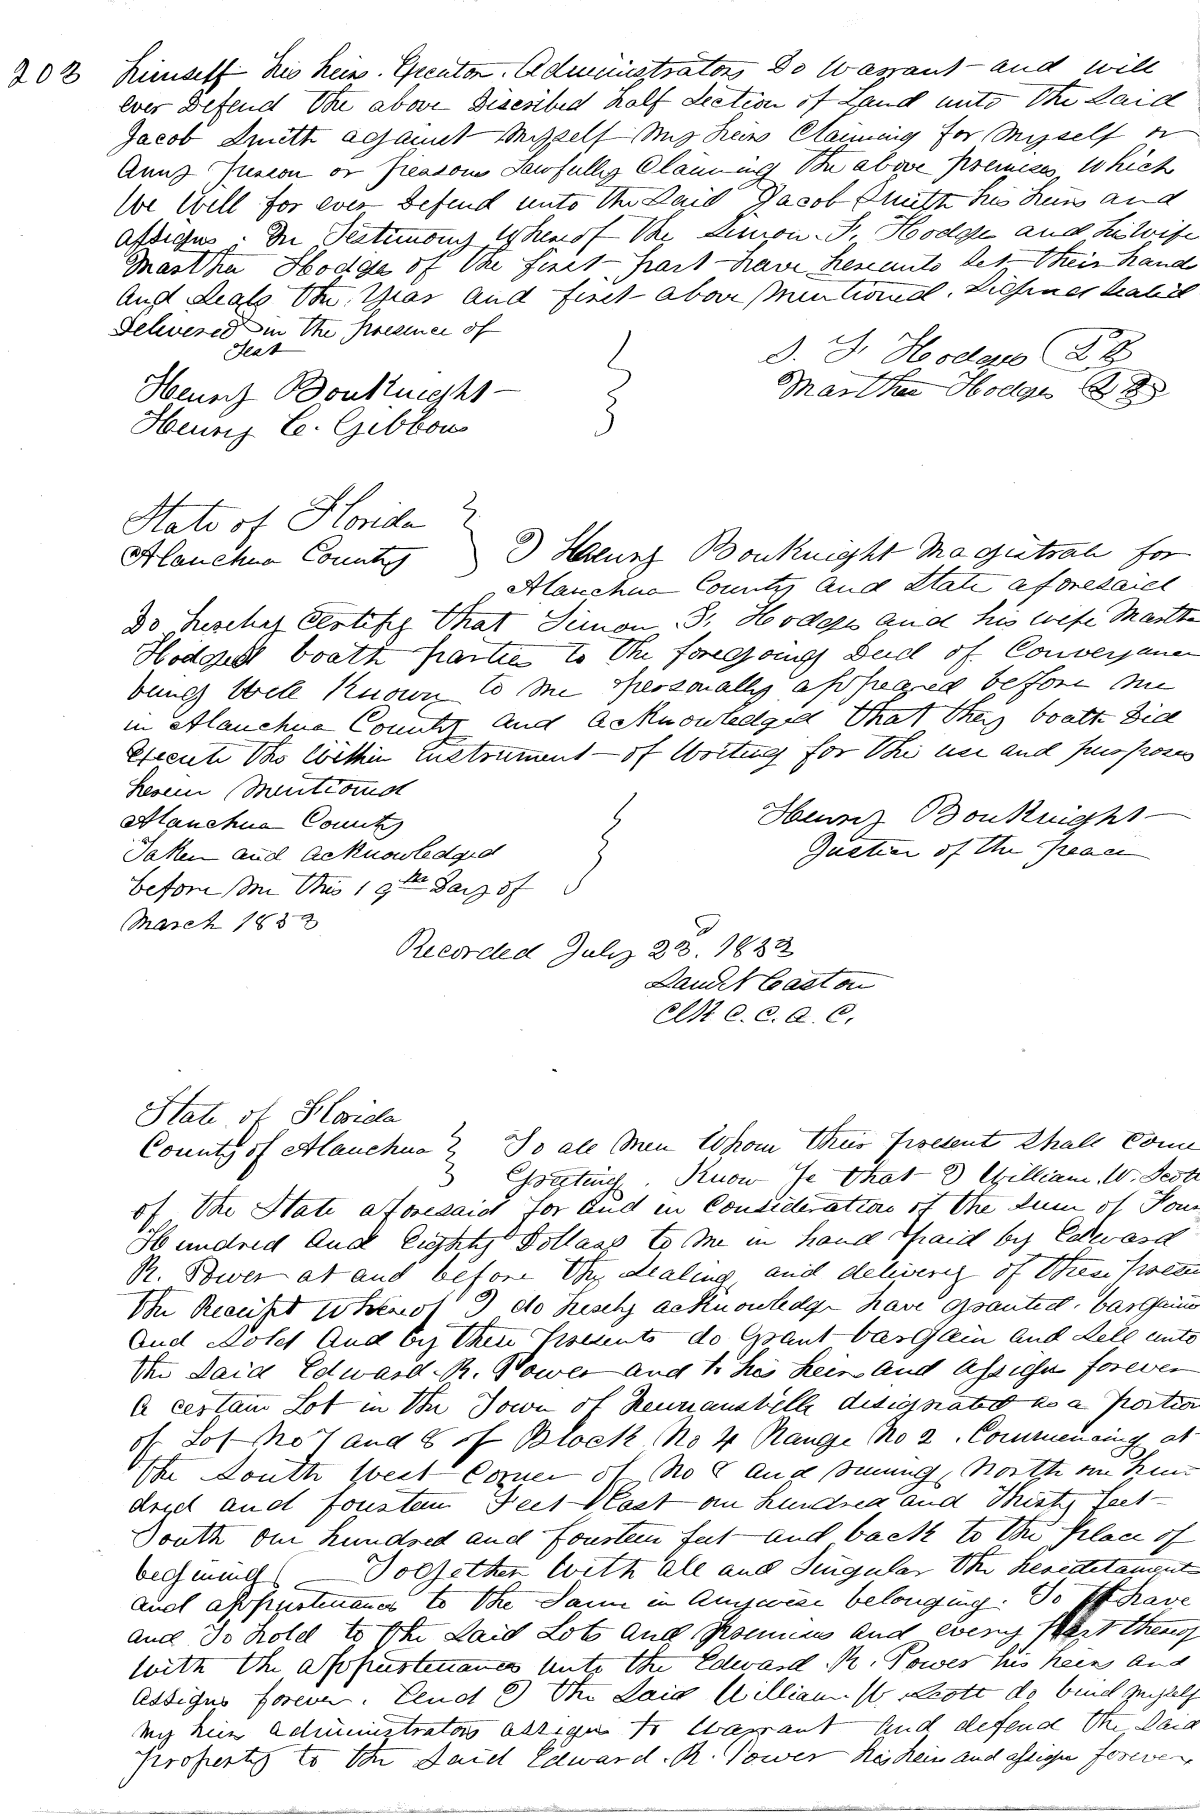 203 himself his heirs. Executor. Administrators Do Warrant and will
ever Defend the above Discribed half Section of Land unto the Said
Jacob Smith against Myself My heirs Claiming for Myself or
Anny Person or Preasons Lawfully Claiming the above premises, which
We Will for ever Defend unto the Said Jacob Smith his heirs and
assigns. In Testimony Whereof the Simon F. Hodges and his wife
Martha Hodges of the first part have hereunto Set their hand
And Seals the Year and first above Mentioned. Signed Sealed
Delivered in the presence of
Test
S. F. Hodges
Henry Bouknight
Martha Hodges
Henry C. Gibbons
State of Florida
Alanchua County
I Henry Bouknight Magistrate for
Alanchua County and State aforesaid
Do hereby Certify that Simon F. Hodges and his wife Martha
Hodges boath parties to the foregoing Deed of Conveyance
being Well Known to me personally appeared before me
in Alanchua County and acknowledged that they boath Did
Execute the Within instrument of Writing for the use and purposes
herein Mentioned
Alanchua County
Henry Bouknight
Taken and acknowledged
Justice of the peace
before Me this 19th Day of
March 1833
Recorded July 23d. 1833
Clk C. C. A. C.
State of Florida
County of Alanchua
To all Men Whom their presents Shall Come
Greeting. Know Ye that I William. W. Scott
of the State aforesaid for and in Consideration of the Sum of Four
Hundred And Eighty Dollars to Me in hand paid by Edward
R. Power at and before the Sealing and delivery of these presen
the Receipt Whereof I do hereby acknowledge have granted. bargained
And Sold And by these presents do Grant bargain and Sell unto
the Said Edward. R. Power and to his heirs and Assigns forever
A certain Lot in the Town of Newnansville disignated as a portion
of Lot No 7 and 8 of Block No 4 Range No 2. Commencing at
the South West Corner of No 8 and runing, North one hun
dred and fourteen Feet East one hundred and Thirty feet
South one hundred and fourteen feet and back to the place of
begining ( Together With all and Singular the heredetaments
and appurtenances to the Same in Anywise belonging. To have
and To hold to the Said Lots and premises and every part thereof
With the appurtenances Unto the Edward. R. Power his heirs and
assigns forever. And I the Said William. W. Scott do bind myself
my heirs administrators assigns to Warrant And defend the Said
property to the Said Edward. R. Power his heirs and assigns forever.